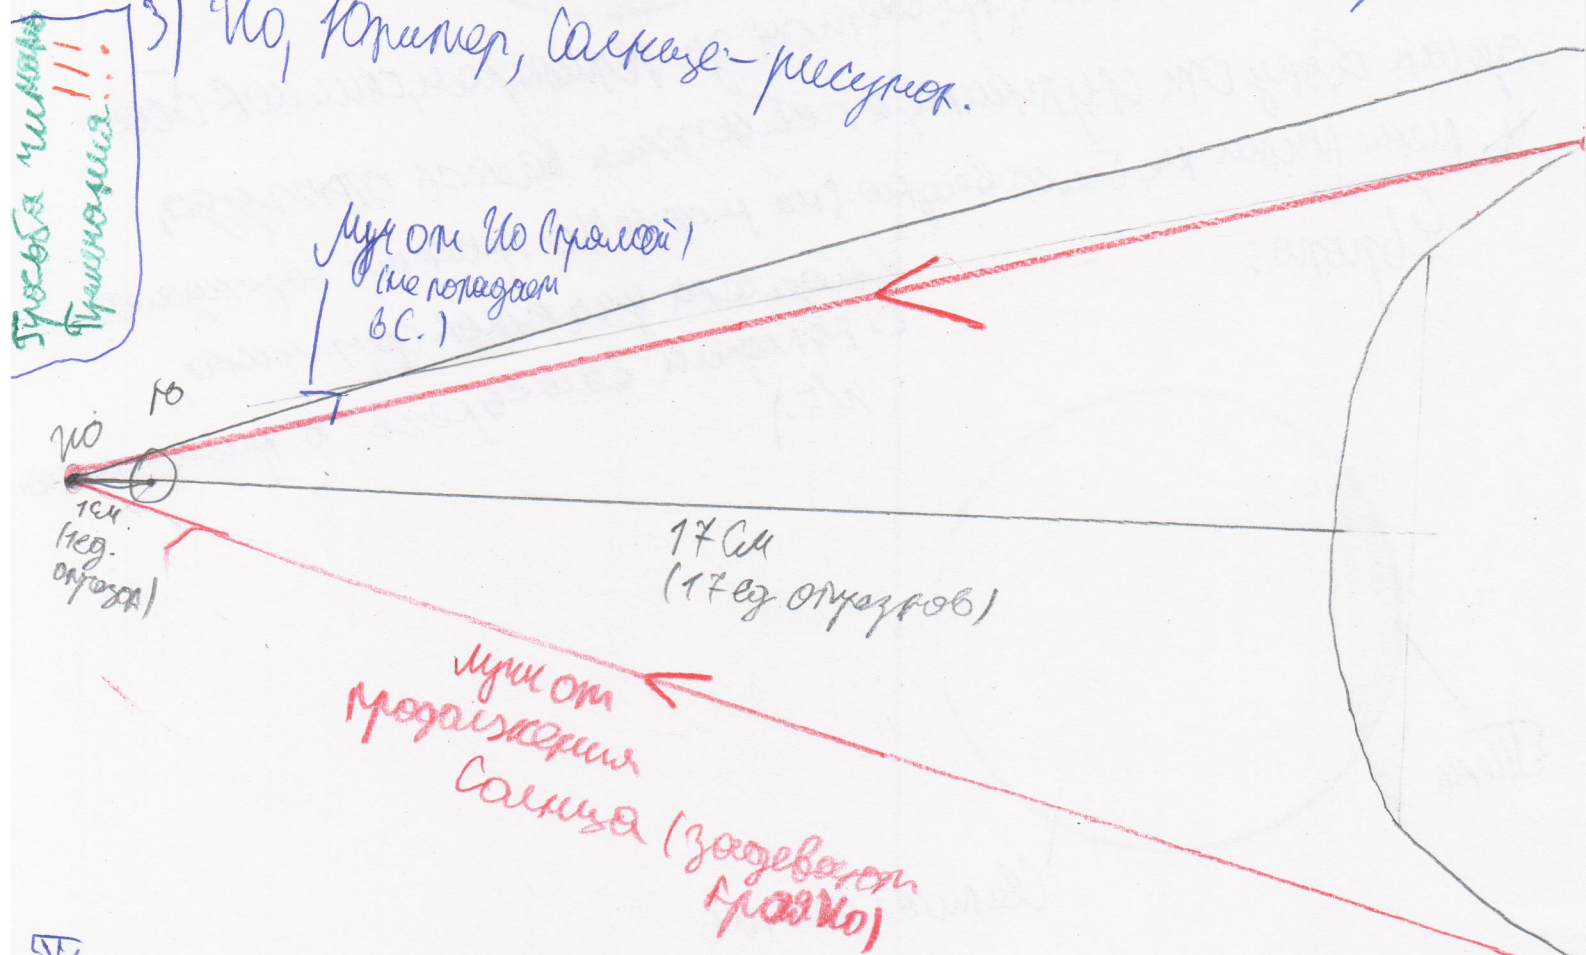 Просьба читать
Примечания!!!
3) Ио, Юпитер, Солнце – рисунок.
Луч от Ио (прямой)
(не попадает
в С.)
Ю
ИО
1см.
(1ед.
отрезок)
17 см
(17 ед. отрезков)
Лучи от
продолжения
Солнца (задевают
края Ио)